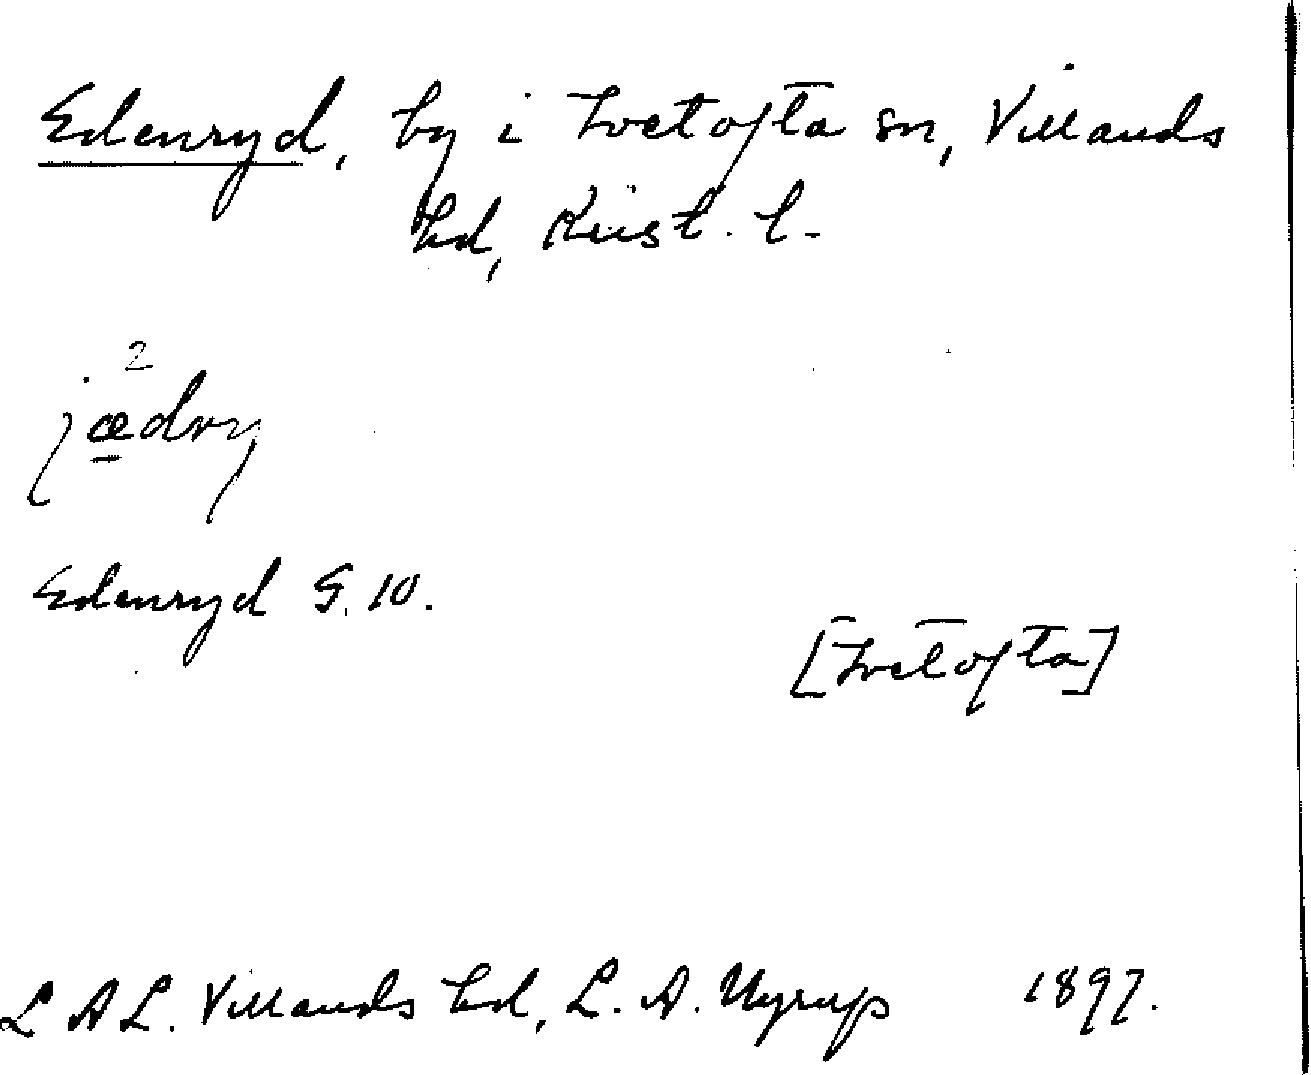 Edenryd, by i Ivetofta sn, Villands
hd, Krist. l.
2
jædry
Edenryd G. 10.
[Ivetofta]
L A L. Villands hd, L. A. Nyrup 1897.